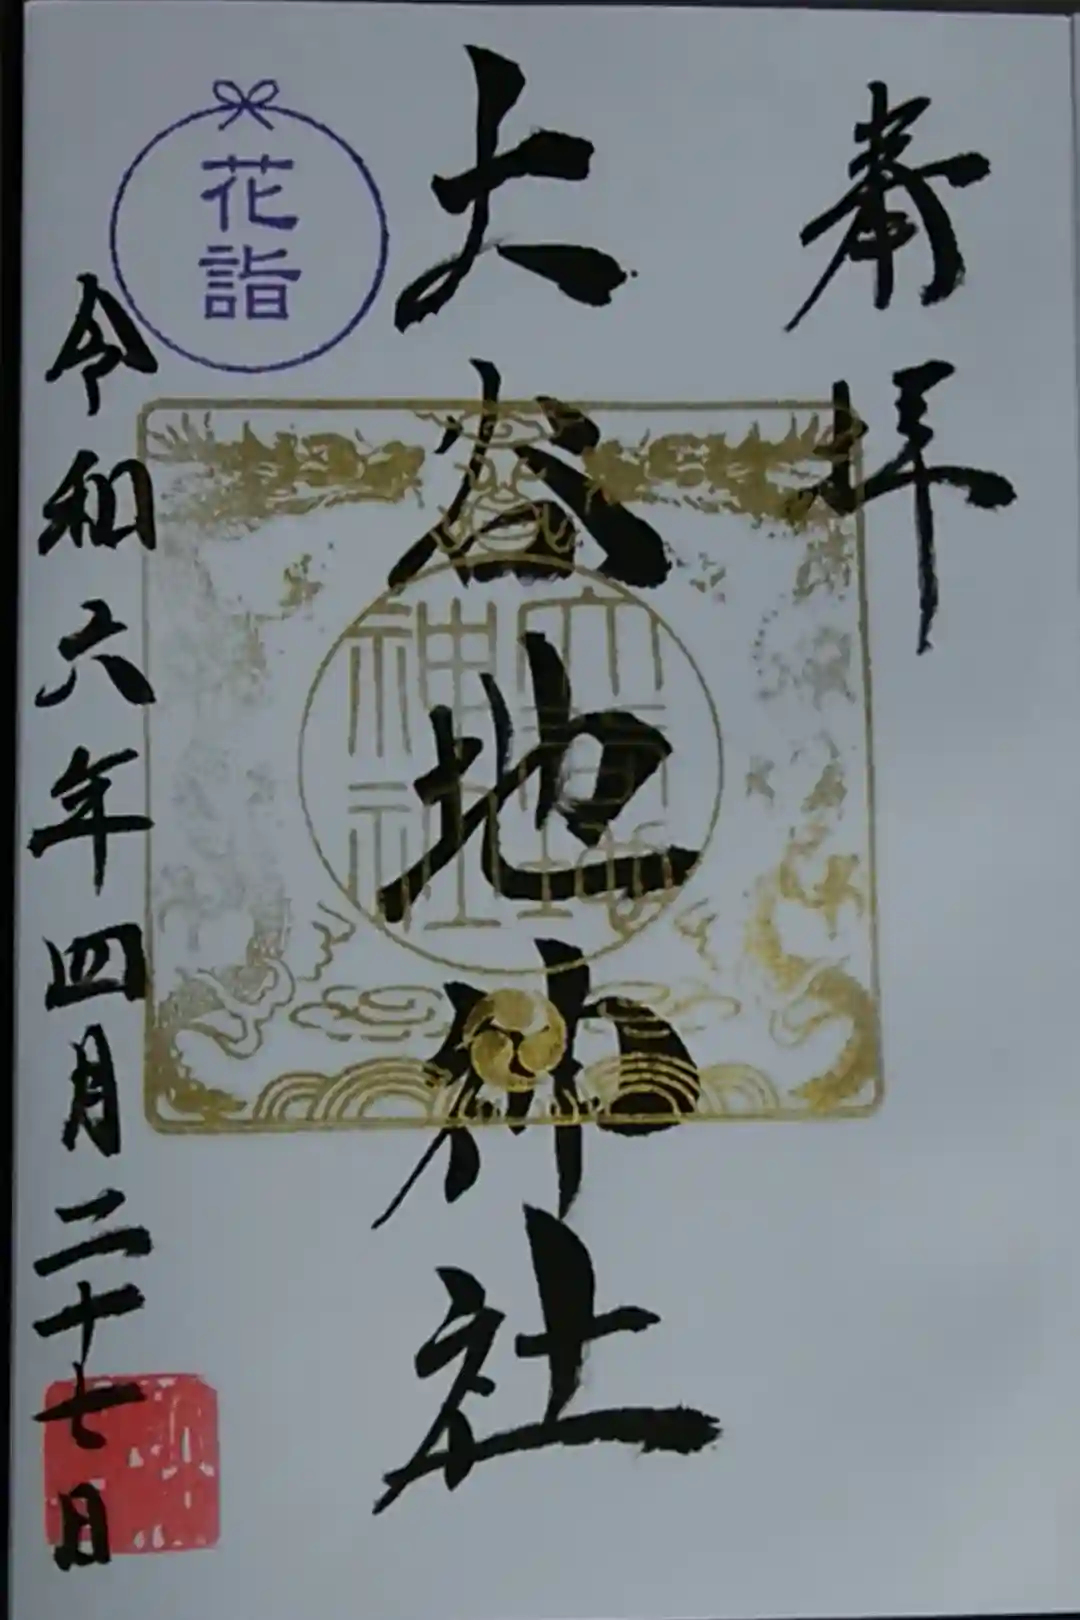 奉拝
大谷地神社
大谷地
神社
花詣
令和六年四月二十七日